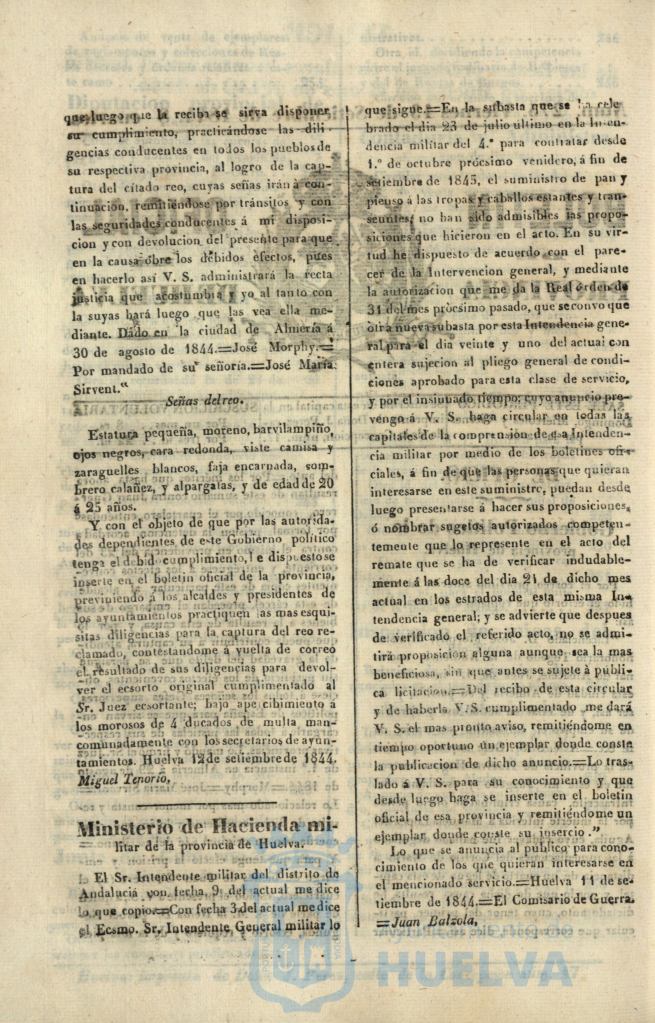 que luego que la reciba se sirva disponer
su cumplimiento, practicándose las dili-
gencias conducentes en todos los pueblos de
su respectiva provincia, al logro de la cap-
tura del citado reo, cuyas señas irán á con-
tinuacion, remitiéndose por tránsitos y con
las seguridades conducentes á mi disposi-
cion y con devolucion del presente para que
en la causa obre los debidos efectos, pues
en hacerlo asi V. S. administrará la recta
justicia que acostumbra y yo al tanto con
la suyas hará luego que las vea ella me-
diante. Dado en la ciudad de Almeria á
30 de agosto de 1844.=José Morphy.=
Por mandado de su señoria.=José Maria
Sirvent.“
Señas del reo.
Estatura pequeña, moreno, barvilampiño,
ojos negros, cara redonda, viste camisa y
zaraguelles blancos, faja encarnada, som-
brero calañez, y alpargatas, y de edad de 20
á 25 años.
Y con el objeto de que por las autorida-
des dependientes de este Gobierno politico
tenga el debid cumplimiento, he dispuesto se
inserte en el boletin oficial de la provincia,
previniendo á los alcaldes y presidentes de
los ayuntamientos practiquen las mas esqui-
sitas diligencias para la captura del reo re-
clamado, contestándome á vuelta de correo
el resultado de sus diligencias para devol-
ver el ecsorto original cumplimentado al
Sr. Juez ecsortante; bajo ape cibimiento á
los morosos de 4 ducados de multa man-
comunadamente con los secretarios de ayun-
tamientos. Huelva 12 de setiembre de 1844.
Miguel Tenorio,
Ministerio de Hacienda mi-
litar de la provincia de Huelva.
El Sr. Intendente militar del distrito de
Andalucia con fecha 9 del actual me dice
lo que copio.=Con fecha 3 del actual me dice
el Ecsmo. Sr. Intendente General militar lo
que sigue.=En la subasta que se ha cele
brado el dia 23 de julio último en la Inten-
dencia militar del 4.º para contratar desde
1.º de octubre prócsimo venidero, á fin de
setiembre de 1845, el suministro de pan y
pienso á las tropas y caballos estantes y tran-
seuntes, no han sido admisibles las propo-
siciones que hicieron en el acto. En su vir-
tud he dispuesto de acuerdo con el pare-
cer de la Intervencion general, y mediante
la autorizacion que me da la Real órden de
31 del mes prócsimo pasado, que se convo que
otra nueva subasta por esta Intendencia gene-
ral para el dia veinte y uno del actual con
entera sujecion al pliego general de condi-
ciones aprobado para esta clase de servicio,
y por el insinuado tiempo; cuyo anuncio pre-
vengo á V. S. haga circular en todas las
capitales de la comprension de esa Intenden-
cia militar por medio de los boletines ofi-
ciales, á fin de que las personas que quieran
interesarse en este suministro, puedan desde
luego presentarse á hacer sus proposiciones,
ó nombrar sugetos autorizados competen-
temente que lo represente en el acto del
remate que se ha de verificar indudable-
mente á las doce del dia 21 de dicho mes
actual en los estrados de esta misma In-
tendencia general; y se advierte que despues
de verificado el referido acto, no se admi-
tirá proposicion alguna aunque sea la mas
beneficiosa, sin que antes se sujete á públi-
ca licitacion.=Del recibo de esta circular
y de haberla V. S. cumplimentado me dará
V. S. el mas pronto aviso, remitiéndome en
tiempo oportuno un ejemplar donde conste
la publicacion de dicho anuncio.=Lo tras-
lado á V. S. para su conocimiento y que
desde luego haga se inserte en el boletin
oficial de esa provincia y remitiéndome un
ejemplar donde conste su insercio .”
Lo que se anuncia al público para cono-
cimiento de los que quieran interesarse en
el mencionado servicio.=Huelva 11 de se-
tiembre de 1844.=El Comisario de Guerra.
=Juan Balzola,
HUELVA